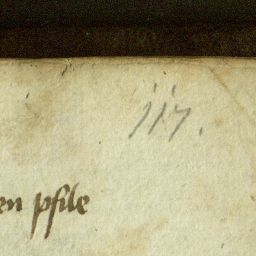 117.
en pfile